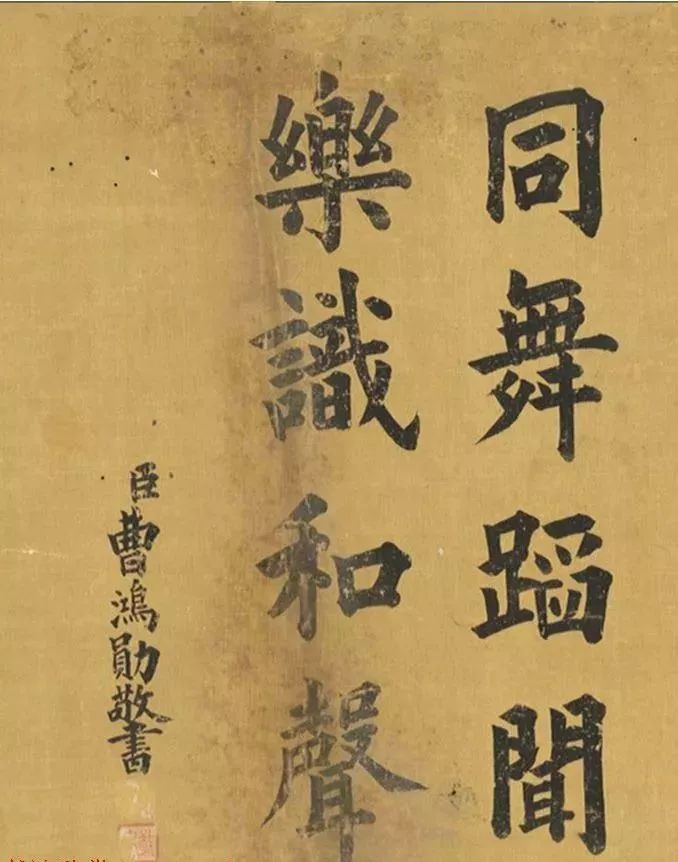 同舞蹈聞
樂識和聲
臣曹鴻勛敬書